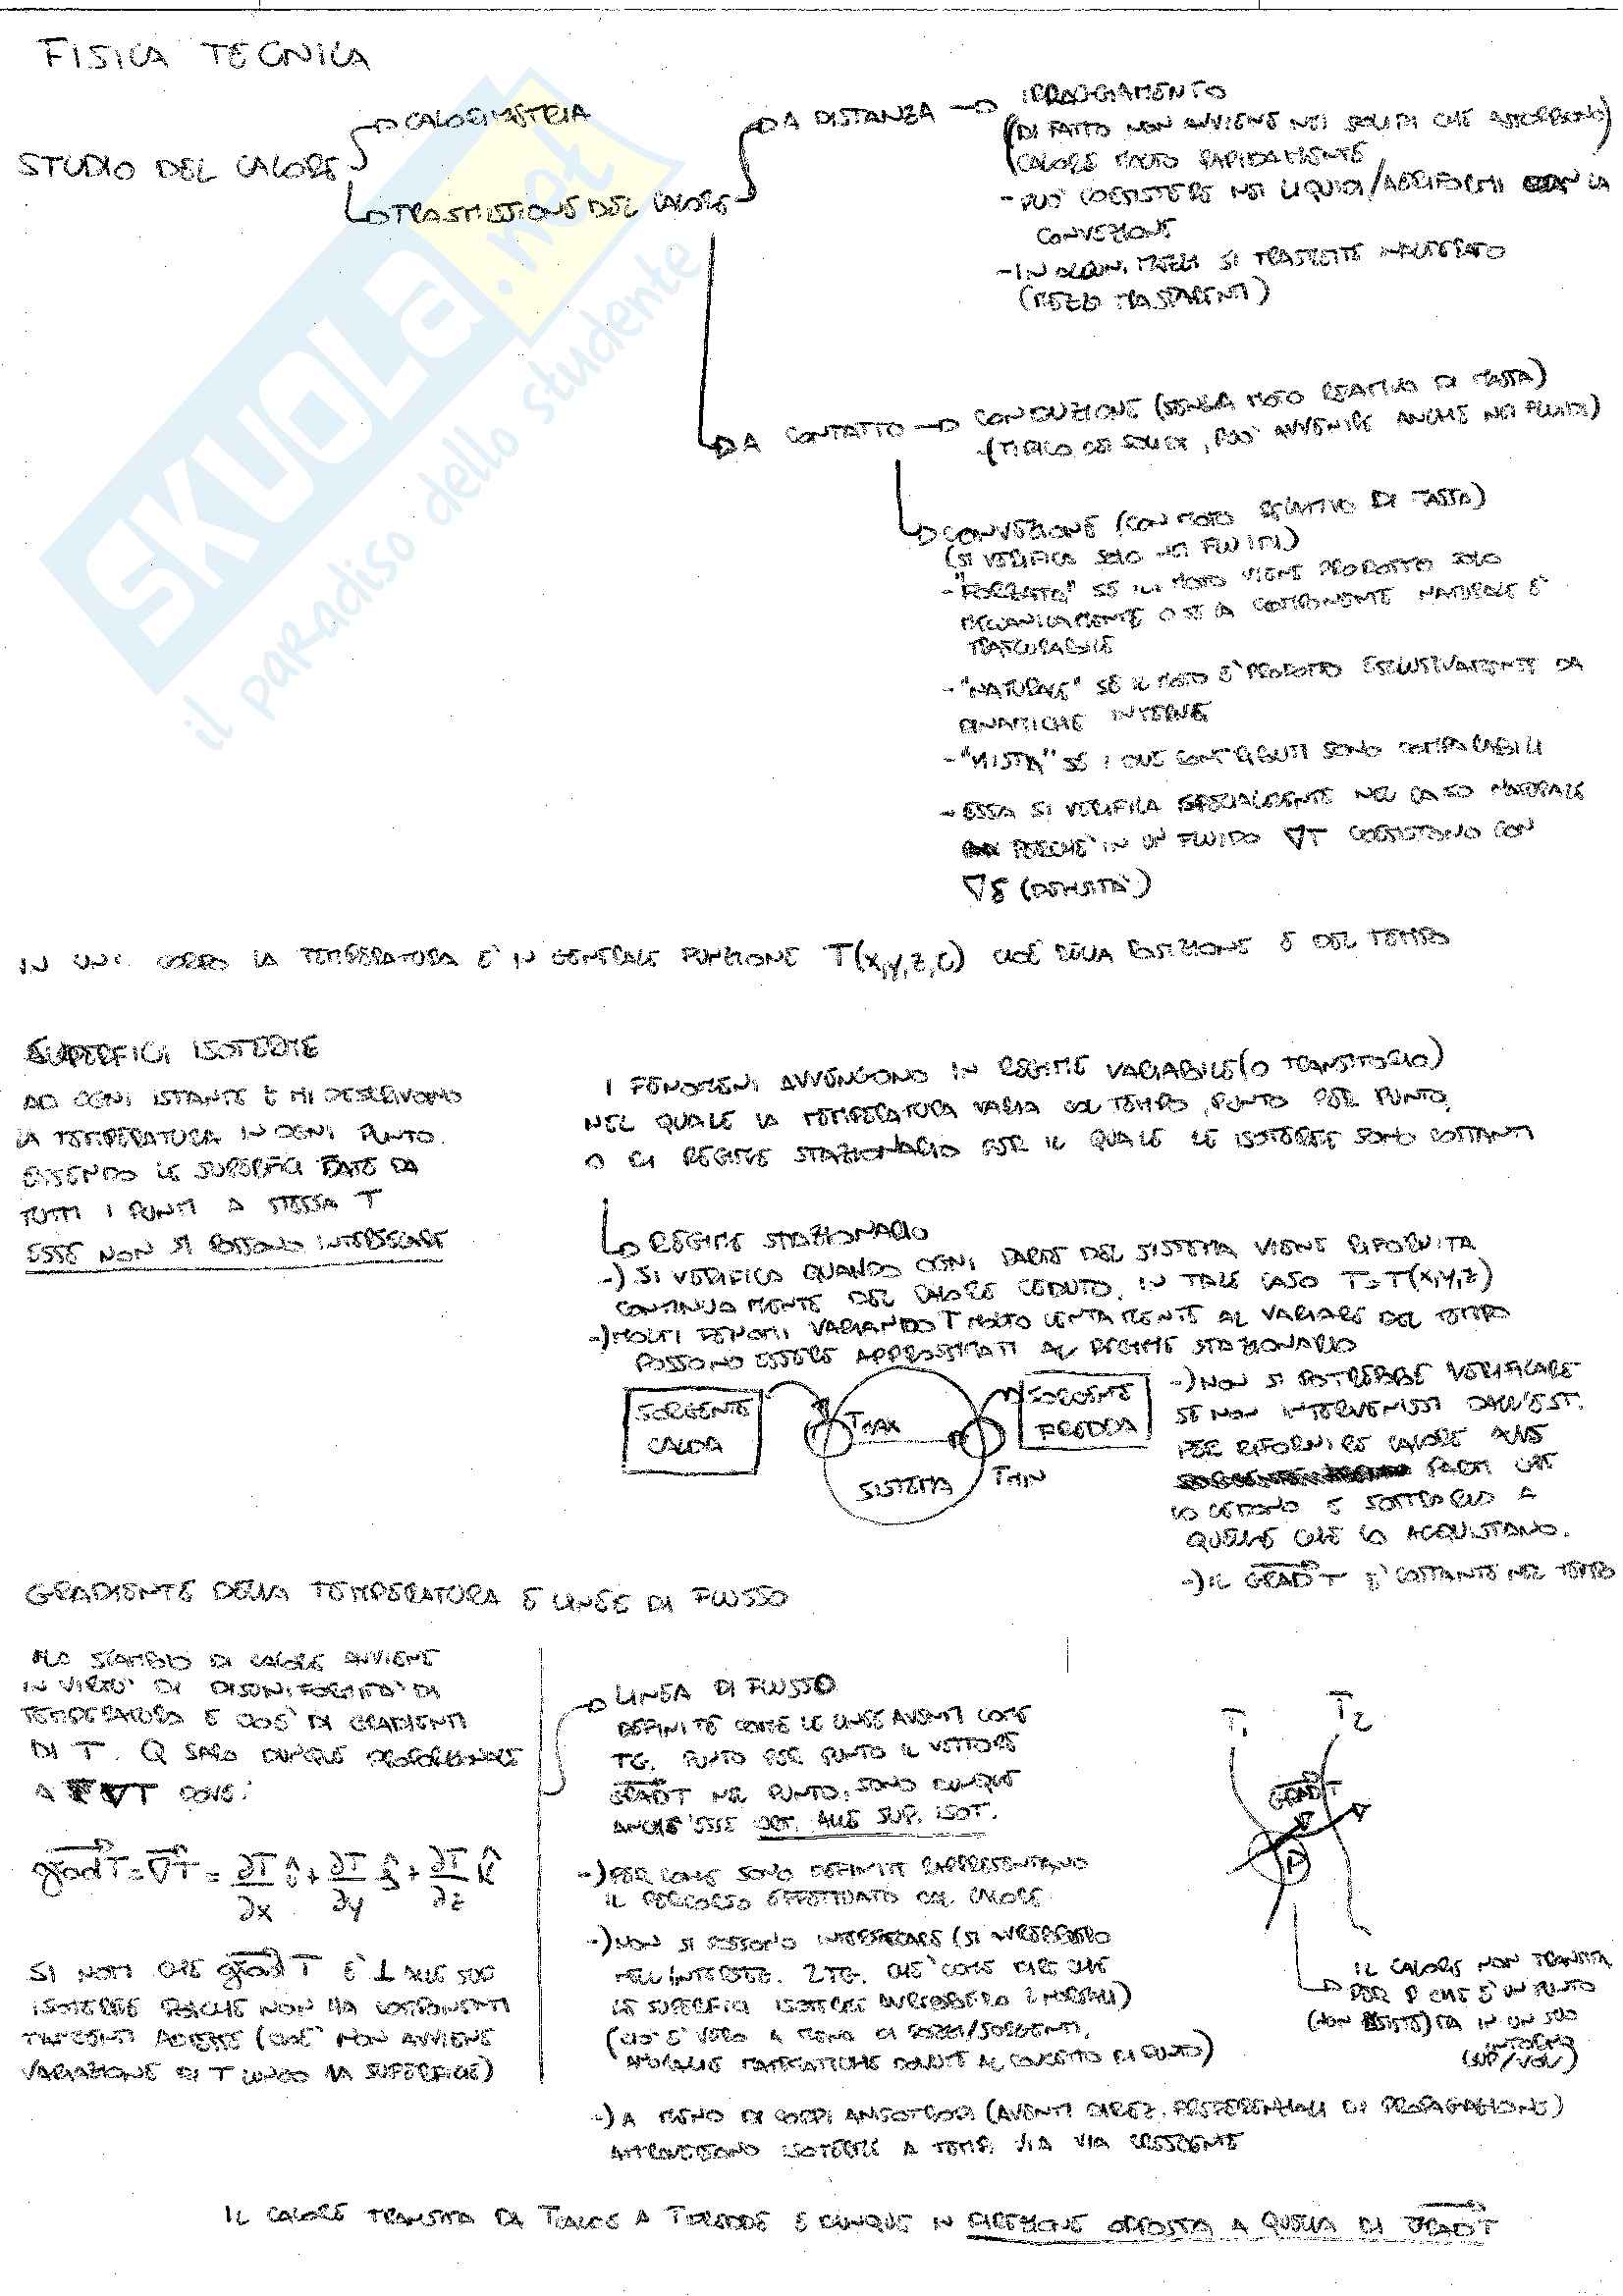 FISICA TECNICA
STUDIO DEL CALORE
CALORIMETRIA
TRASMISSIONE DEL CALORE
A DISTANZA
IRRAGGIAMENTO
(DI FATTO NON AVVIENE NEI SOLIDI CHE ASSORBONO
CALORE MOLTO RAPIDAMENTE)
- PUO' COESISTERE NEI LIQUIDI/AERIFORMI CON LA
CONVEZIONE
- IN ALCUNI MEZZI SI TRASMETTE INALTERATO
(MEZZI TRASPARENTI)
A CONTATTO
CONDUZIONE (SENZA MOTO RELATIVO DI MASSA)
- (TIPICO DEI SOLIDI, PUO' AVVENIRE ANCHE NEI FLUIDI)
CONVEZIONE (CON MOTO RELATIVO DI MASSA)
(SI VERIFICA SOLO NEI FLUIDI)
- "FORZATA" SE IL MOTO VIENE PRODOTTO SOLO
MECCANICAMENTE O SE LA COMPONENTE NATURALE E'
TRASCURABILE
- "NATURALE" SE IL MOTO E' PRODOTTO ESCLUSIVAMENTE DA
DINAMICHE INTERNE
- "MISTA" SE I DUE CONTRIBUTI SONO COMPARABILI
- ESSA SI VERIFICA NEL CASO NATURALE
PERCHE' IN UN FLUIDO ∇T COESISTONO CON
∇δ (DENSITA')
IN UN CORPO LA TEMPERATURA E' IN GENERALE FUNZIONE T(x,y,z,t) CIOE' DELLA POSIZIONE E DEL TEMPO
SUPERFICI ISOTERME
AD OGNI ISTANTE t MI DESCRIVONO
LA TEMPERATURA IN OGNI PUNTO.
ESSENDO LE SUPERFICI DATE DA
TUTTI I PUNTI A STESSA T
ESSE NON SI POSSONO INTERSECARE
I FENOMENI AVVENGONO IN REGIME VARIABILE (O TRANSITORIO)
NEL QUALE LA TEMPERATURA VARIA COL TEMPO, PUNTO PER PUNTO,
O DI REGIME STAZIONARIO PER IL QUALE LE ISOTERME SONO COSTANTI
REGIME STAZIONARIO
-) SI VERIFICA QUANDO OGNI PARTE DEL SISTEMA VIENE RIFORNITA
CONTINUAMENTE DEL CALORE CEDUTO, IN TALE CASO T=T(x,y,z)
-) MOLTI FENOMI VARIANDO T MOLTO LENTAMENTE AL VARIARE DEL TEMPO
POSSONO ESSERE APPROSSIMATI AL REGIME STAZIONARIO
SORGENTE
CALDA
TMAX
SISTEMA
TMIN
SORGENTE
FREDDA
-) NON SI POTREBBE VERIFICARE
SE NON INTERVENISSI DALL'EST.
PER RIFORNIRE CALORE ALLE
PARTI CHE
LO CEDONO E SOTTRARLO A
QUELLE CHE LO ACQUISTANO.
-) IL GRAD T E' COSTANTE NEL TEMPO
GRADIENTE DELLA TEMPERATURA E LINEE DI FLUSSO
LO SCAMBIO DI CALORE AVVIENE
IN VIRTU' DI DISUNIFORMITA' DI
TEMPERATURA E CIOE' DI GRADIENTI
DI T. Q SARA DUNQUE PROPORZIONALE
A ∇T DOVE:
grad T = ∇T = ∂T/∂x î + ∂T/∂y ĵ + ∂T/∂z k̂
SI NOTI CHE grad T E' ⊥ ALLE SUP
ISOTERME PERCHE' NON HA COMPONENTI
TANGENTI AD ESSE (CIOE' NON AVVIENE
VARIAZIONE DI T LUNGO LA SUPERFICIE)
LINEA DI FLUSSO
DEFINITE COME LE LINEE AVENTI COME
TG. PUNTO PER PUNTO IL VETTORE
GRAD T NEL PUNTO, SONO DUNQUE
ANCH'ESSE ORT. ALLE SUP. ISOT.
-) PER COME SONO DEFINITE RAPPRESENTANO
IL PERCORSO EFFETTUATO DAL CALORE
-) NON SI POSSONO INTERSECARE (SI AVREBBERO
NELL'INTERSEZ. 2 TG. CHE E' COME DIRE CHE
LE SUPERFICI ISOTERME AVREBBERO 2 NORMALI)
(CIO' E' VERO A MENO DI POZZI/SORGENTI,
ANOMALIE MATEMATICHE DOVUTE AL CONCETTO DI PUNTO)
-) A MENO DI CORPI ANISOTROPI (AVENTI DIREZ. PREFERENZIALI DI PROPAGAZIONE)
ATTRAVERSANO ISOTERME A TEMP. VIA VIA CRESCENTE
T1
T2
GRAD T
P
IL CALORE NON TRANSITA
PER P CHE E' UN PUNTO
(NON ESISTE) MA IN UN SUO
INTORNO
(SUP/VOL)
IL CALORE TRANSITA DA TCALDE A TFREDDE E DUNQUE IN DIREZIONE OPPOSTA A QUELLA DI GRAD T
SKUOLA.net
il paradiso dello studente